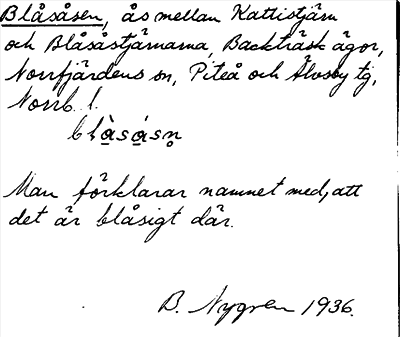 Blåsåsen, ås mellan Kattistjärn
och Blåsåstjärnarna, Backträsk ägor,
Norrfjärdens sn, Piteå och Älvsby tg,
Norrb. l.
Man förklarar namnet med, att
det är blåsigt där.
B. Nygren 1936.